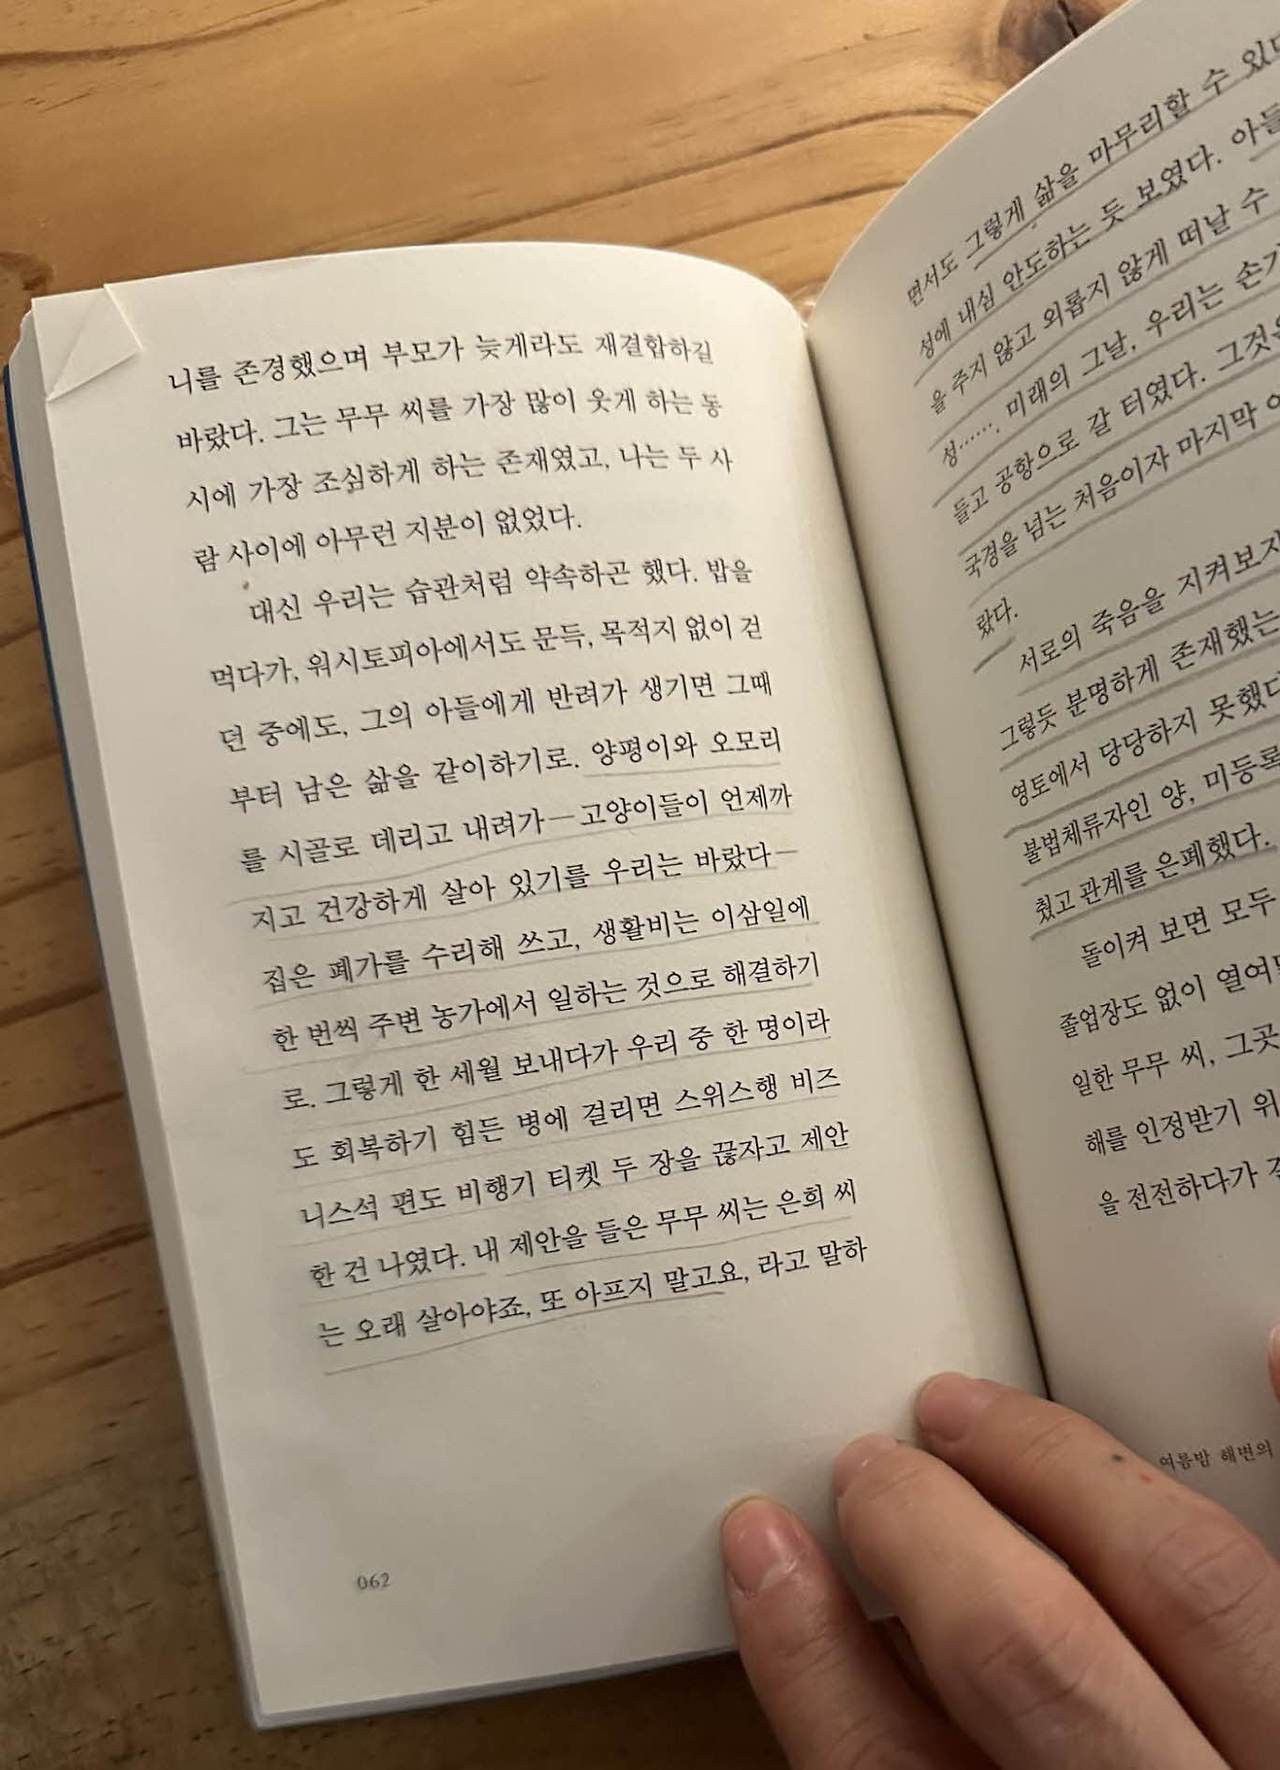 니를 존경했으며 부모가 늦게라도 재결합하길
바랐다. 그는 무무 씨를 가장 많이 웃게 하는 동
시에 가장 조심하게 하는 존재였고, 나는 두 사
람 사이에 아무런 지분이 없었다.
대신 우리는 습관처럼 약속하곤 했다. 밥을
먹다가, 워시토피아에서도 문득, 목적지 없이 걷
던 중에도, 그의 아들에게 반려가 생기면 그때
부터 남은 삶을 같이하기로. 양평이와 오모리
를 시골로 데리고 내려가—고양이들이 언제까
지고 건강하게 살아 있기를 우리는 바랐다—
집은 폐가를 수리해 쓰고, 생활비는 이삼일에
한 번씩 주변 농가에서 일하는 것으로 해결하기
로. 그렇게 한 세월 보내다가 우리 중 한 명이라
도 회복하기 힘든 병에 걸리면 스위스행 비즈
니스석 편도 비행기 티켓 두 장을 끊자고 제안
한 건 나였다. 내 제안을 들은 무무 씨는 은희 씨
는 오래 살아야죠, 또 아프지 말고요, 라고 말하
062
면서도 그렇게 삶을 마무리할 수 있다
성에 내심 안도하는 듯 보였다. 아들
을 주지 않고 외롭지 않게 떠날 수
성……. 미래의 그날, 우리는 손가
들고 공항으로 갈 터였다. 그것은
국경을 넘는 처음이자 마지막
랐다.
서로의 죽음을 지켜보자
그렇듯 분명하게 존재했는
영토에서 당당하지 못했다
불법체류자인 양, 미등록
췄고 관계를 은폐했다.
돌이켜 보면 모두
졸업장도 없이 열여
일한 무무 씨, 그곳
해를 인정받기 위
을 전전하다가
여름밤 해변의